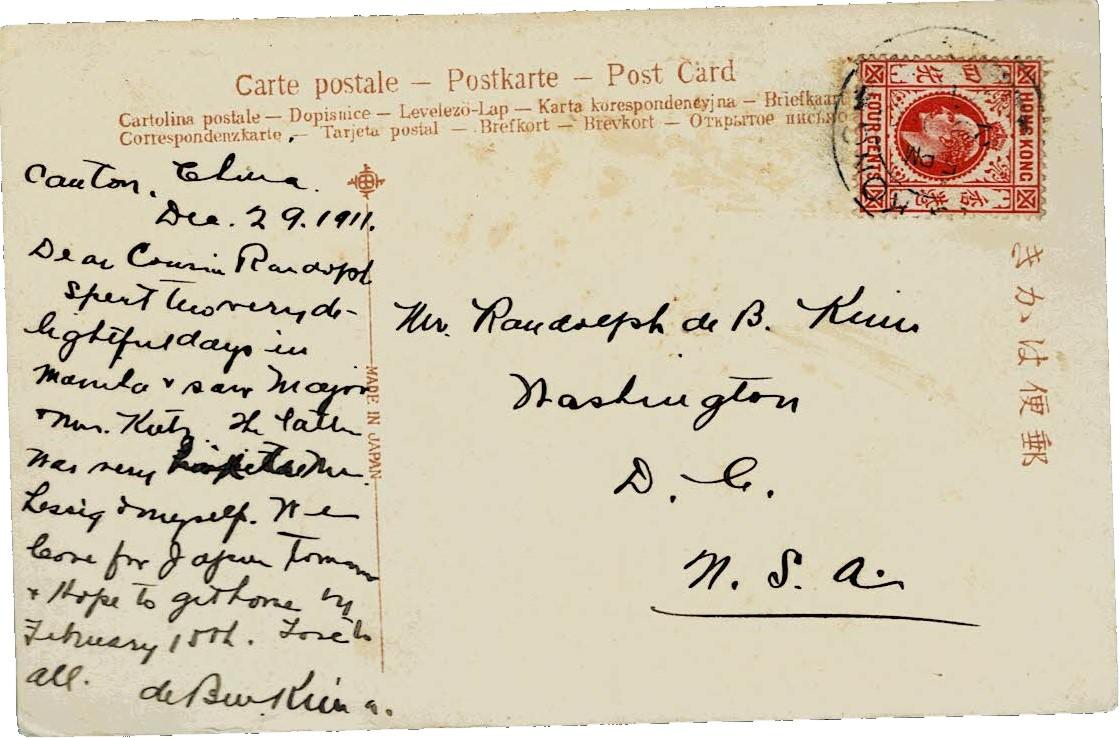 Carte postale – Postkarte – Post Card
Cartolina postale – Dopisnice – Levelező-Lap – Karta korespondencyjna – Briefkaart
Correspondenzkarte – Tarjeta postal – Brefkort – Brevkort – Открытое письмо
Canton, China.
Dec. 29. 1911.
Dear Cousin Randolph
Spent two very de-
lightful days in
Manila & saw Major
& Mrs. Kutz. The latter
was very to Mr.
Lessig & myself. We
leave for Japan
& Hope to get home by
February 15th. Love to
all. de Bur. Keim
MADE IN JAPAN
Mr. Randolph de B. Keim
Washington
D. C.
U. S. A.
HONG KONG
FOUR CENTS
四
香港
PM
きかは便郵